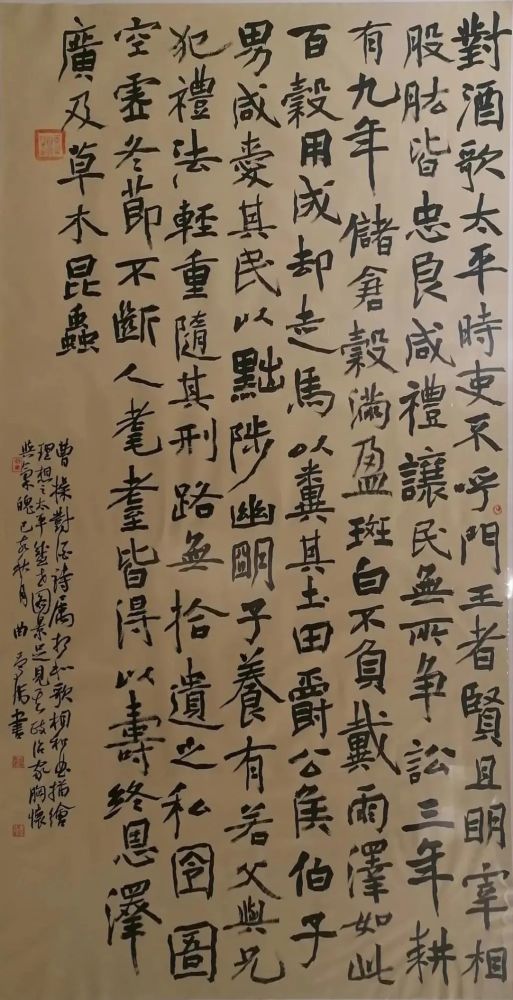 對酒歌太平時吏不呼門王者賢且明宰相
股肱皆忠良咸禮讓民無所爭訟三年耕
有九年儲倉穀滿盈斑白不負戴雨澤如此
百穀用成却走馬以糞其土田爵公侯伯子
男咸愛其民以黜陟幽明子養有若父與兄
犯禮法輕重隨其刑路無拾遺之私囹圄
空虛冬節不斷人耄耋皆得以壽終恩澤
廣及草木昆蟲
曹操對酒詩屬相和歌相和曲描繪
理想之太平盛世圖景足見其政治家胸懷
與氣魄己亥秋月曲書